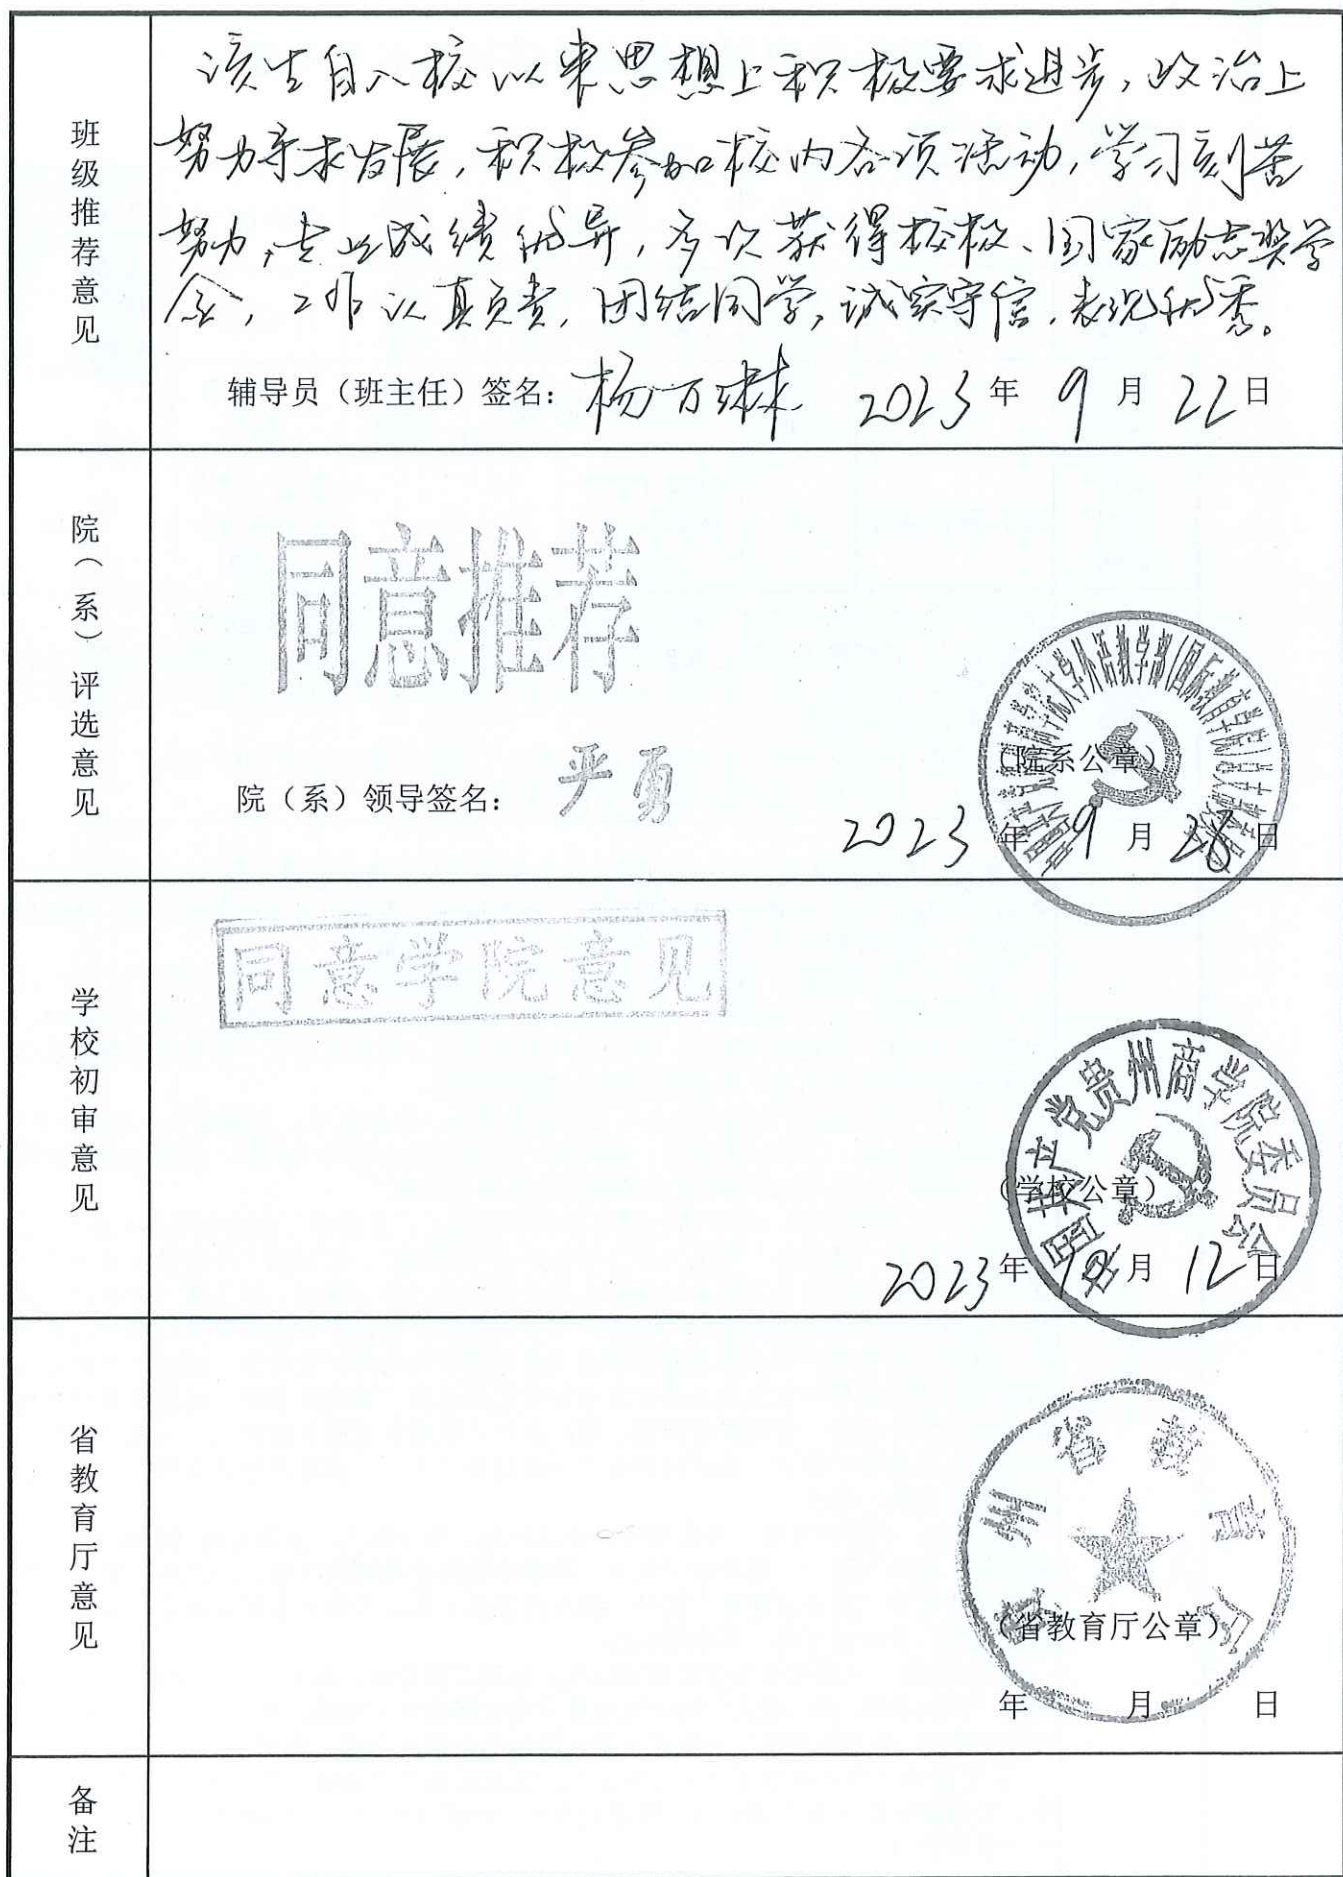 班级推荐意见
该生自入校以来思想上积极要求进步，政治上
努力寻求发展，积极参加校内各项活动，学习刻苦
努力，专业成绩优异，多次获得校级、国家励志奖学
金，工作认真负责，团结同学，诚实守信，表现优秀。
辅导员（班主任）签名：杨万琳 2023年9月22日
院（系）评选意见
同意推荐
院（系）领导签名：严勇
（院系公章）
2023年9月26日
学校初审意见
同意学院意见
中国共产党贵州商学院委员会
（学校公章）
2023年10月12日
省教育厅意见
贵州省教育厅
（省教育厅公章）
年 月 日
备注